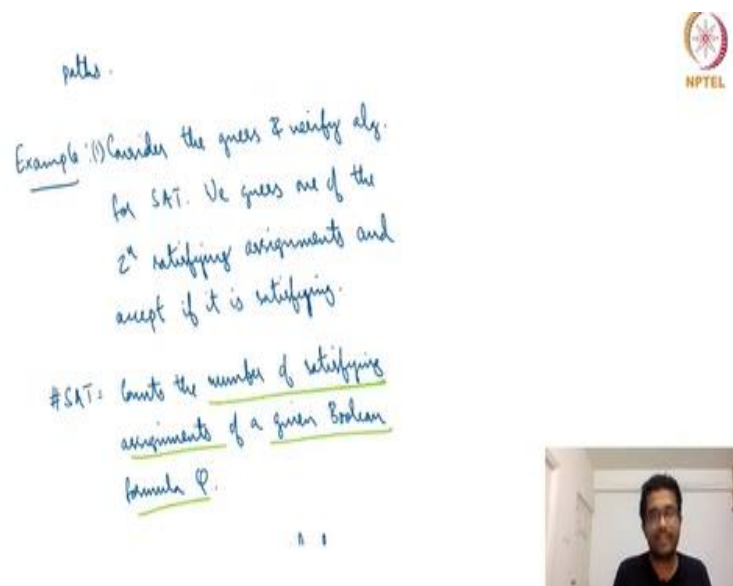 paths.
NPTEL
Example: (1) Consider the guess & verify alg.
for SAT. We guess one of the
2ⁿ satisfying assignments and
accept if it is satisfying.
#SAT: Counts the number of satisfying
assignments of a given Boolean
formula φ.